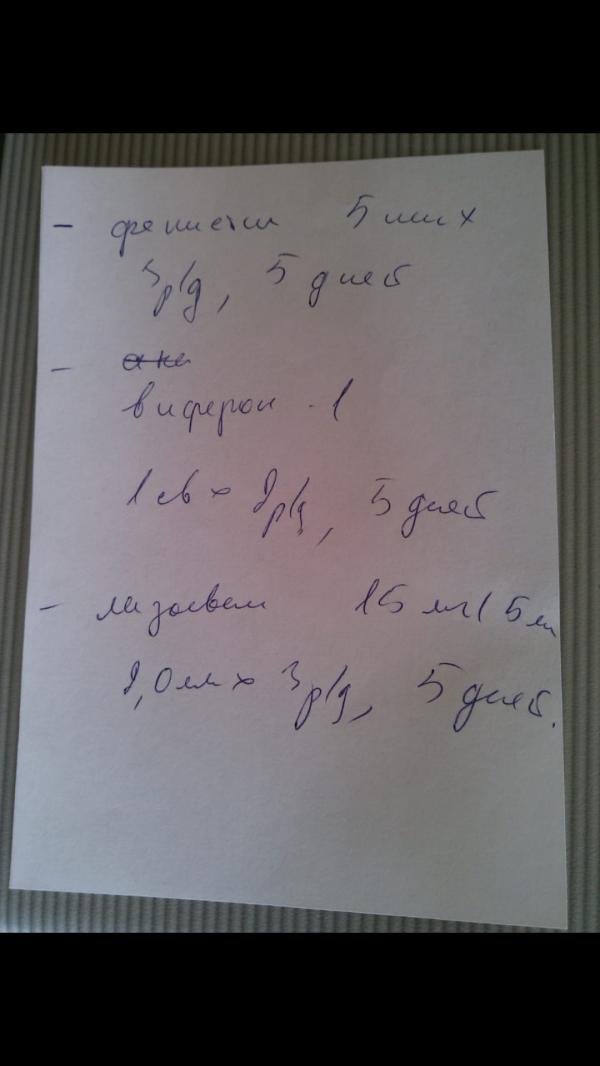 - фенистил 5 мл х
3 р/д, 5 дней
-
виферон - 1
1 св х 2 р/д, 5 дней
- лазолван 15 мг/5 мл
2,0 мл х 3 р/д, 5 дней.